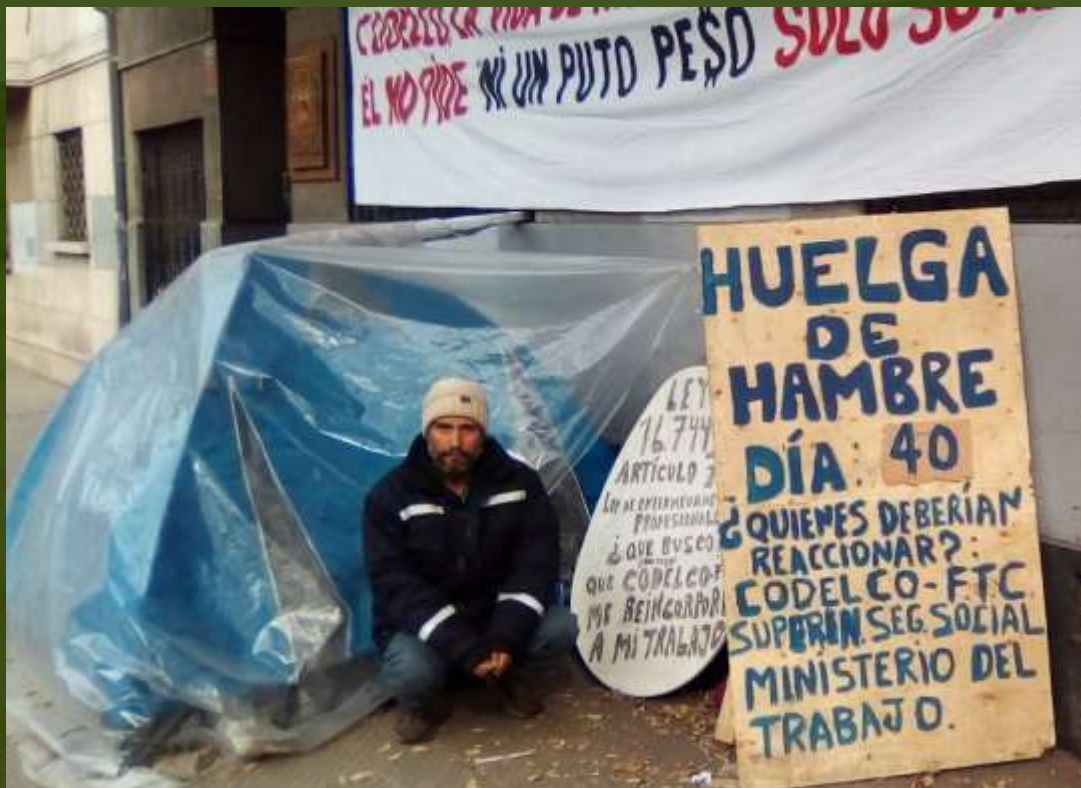 CODELCO LA VIDA DE
EL NO PIDE NI UN PUTO PE$O SOLO SU
LEY
16.744
ARTICULO
LEY DE ENFERMEDADES
PROFESIONAL
¿QUE BUSCO
QUE CODELCO
ME REINCORPOR
A MI TRABAJO
HUELGA
DE
HAMBRE
DÍA: 40
¿QUIENES DEBERÍAN
REACCIONAR?:
CODELCO-FTC
SUPERIN. SEG. SOCIAL
MINISTERIO DEL
TRABAJO.